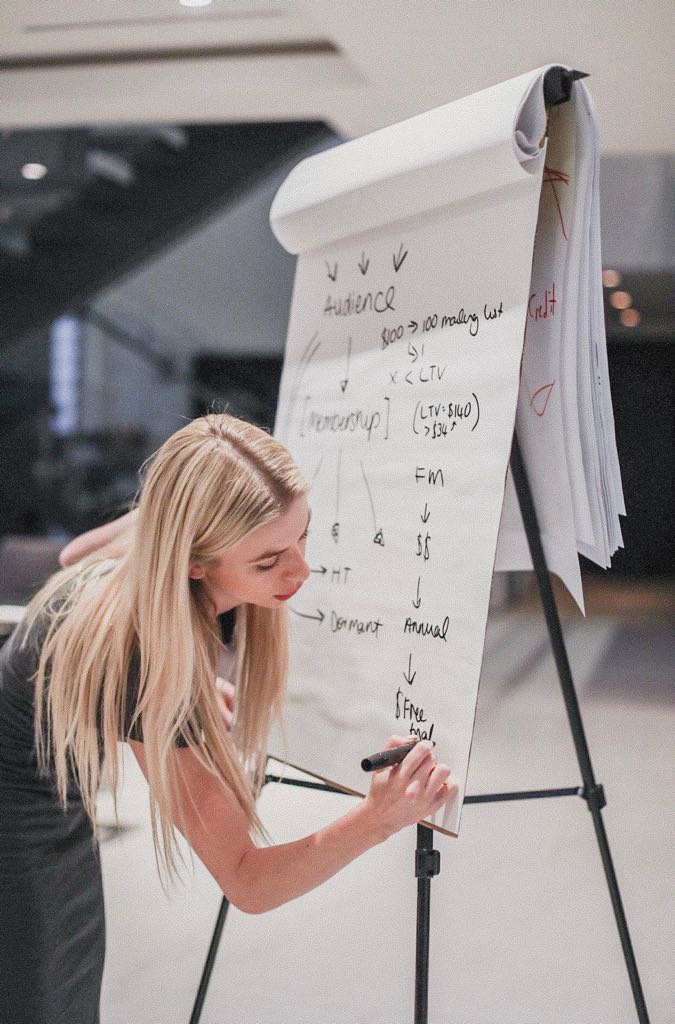 Audience
$100 → 100 mailing list
↳ 1
x < LTV
[Membership]
(LTV = $140)
> $34 ↑
FM
↓
$$
→ HT
↓
→ Dormant
Annual
↓
$ Free
trial
Credit